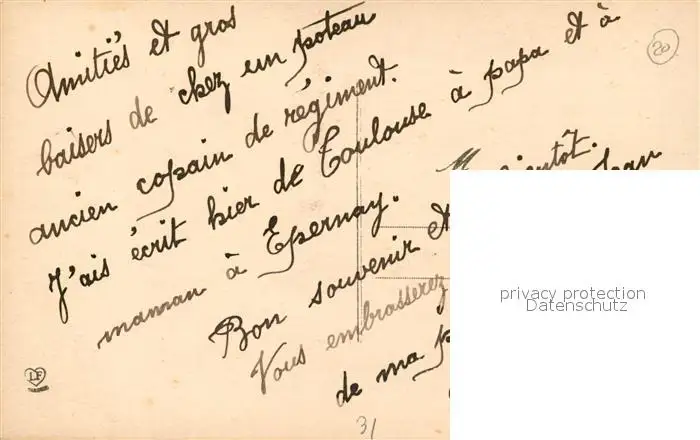 Amitiés et gros
baisers de chez un poteau
ancien copain de régiment.
J'ais écrit hier de Toulouse à papa et à
maman à Epernay.
Bon souvenir et
Jean
Vous embrasserez
de ma
20
31
LF
privacy protection
Datenschutz